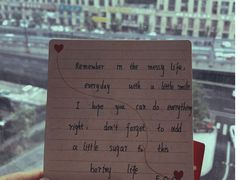 Remember in the messy life,
everyday with a little smile
I hope you can do everything
right, don't forget to add
a little sugar to this
boring life